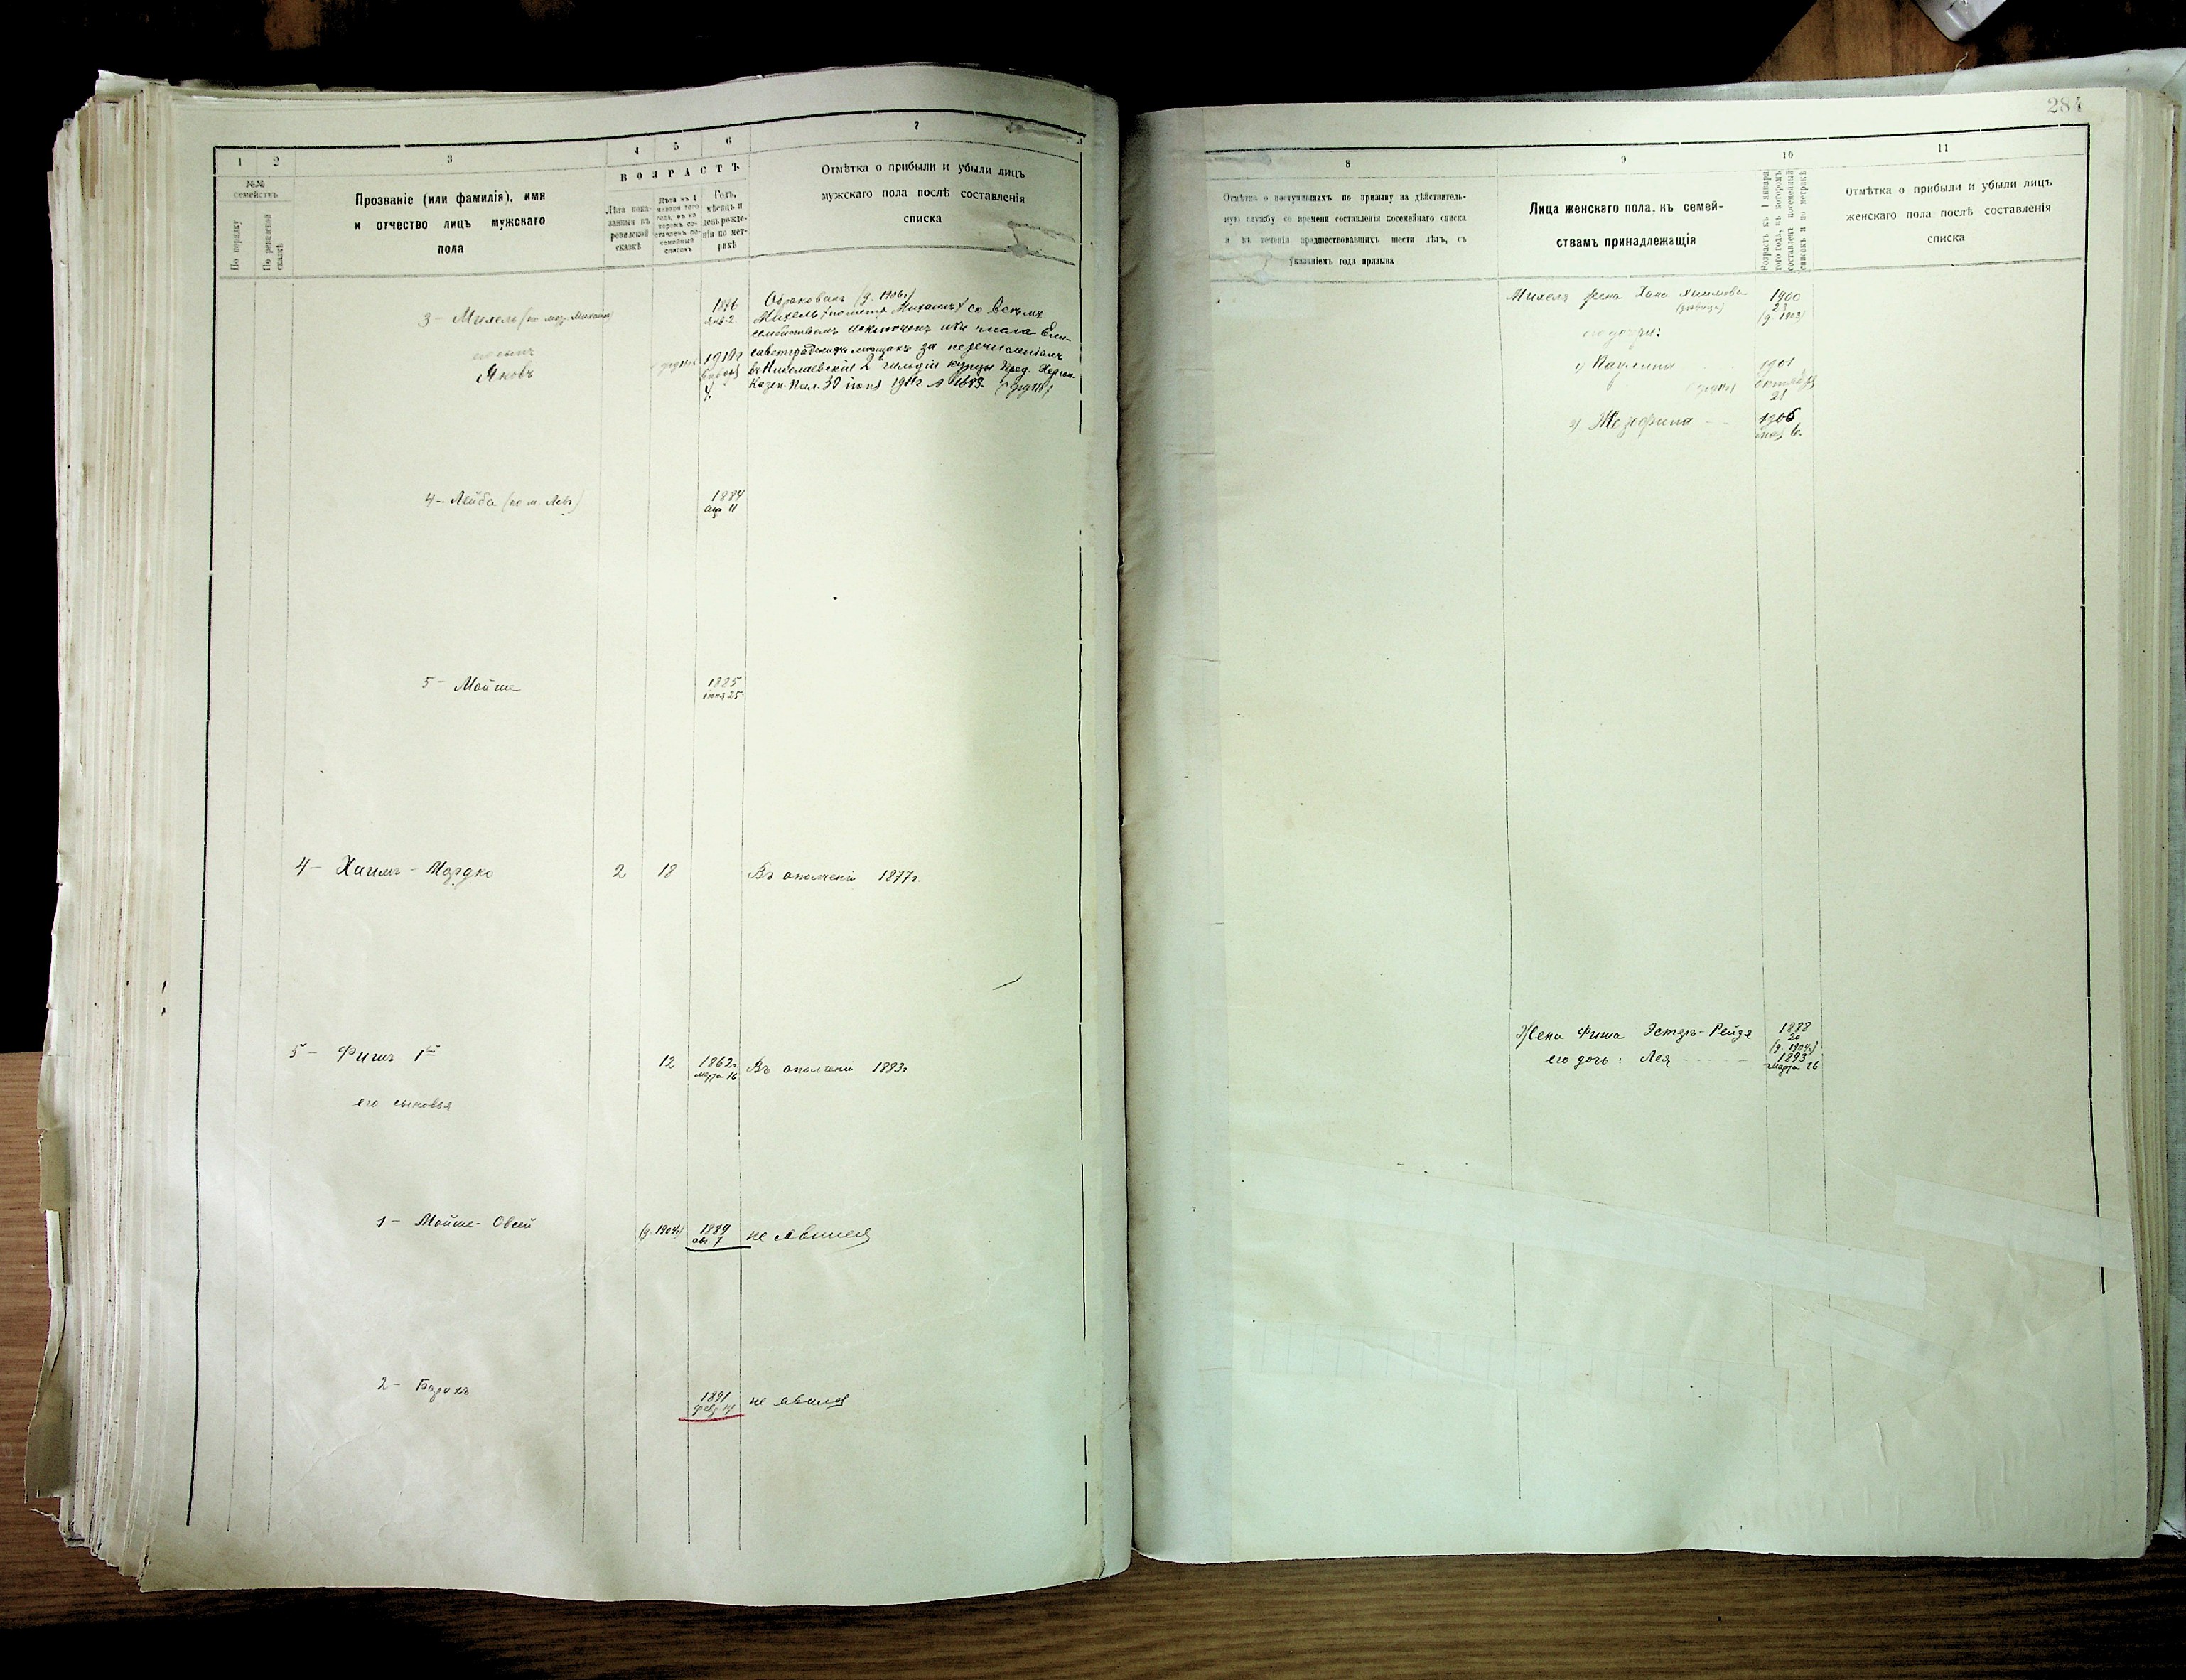 284
1
2
3
4
5
6
7
№№ семействъ
По порядку
По ревизской сказкѣ
Прозваніе (или фамилія), имя
и отчество лицъ мужскаго
пола
ВОЗРАСТЪ
Лѣта показанныя въ ревизской сказкѣ
Лѣта къ 1 января того года, въ которомъ составленъ посемейный списокъ
Годъ, мѣсяцъ и день рожденія по метрикѣ
Отмѣтка о прибыли и убыли лицъ
мужскаго пола послѣ составленія
списка
3 – Михель (по мет. Михаилъ)
1876
янв. 2.
Обракованъ (д. 1906г)
Михель (по метр. Михаилъ) со всѣмъ
семействомъ исключенъ изъ числа Ели-
саветградскихъ мещанъ за перечисленіемъ
въ Николаевскіе 2й гильдіи купцы Пред. Херсон.
Казен. Пал. 30 іюня 1911г. №
его сынъ
Яковъ
1910г
4 – Лейба (по м. Левъ)
1884
апр 11
5 – Мойше
1885
25
4 – Хаимъ - Мордко
2
18
Въ ополченіи 1877г.
5 – Фишъ 1й
12
1862г.
марта 16
Въ ополченіи 1883г
его сыновья
1 – Мойше - Овсей
(д. 1904г)
1889
авг. 7
не явился
2 – Борухъ
1891
не явился
8
9
10
11
Отмѣтка о поступившихъ по призыву на дѣйствитель-
ную службу со времени составленія посемейнаго списка
и въ теченіи предшествовавшихъ шести лѣтъ, съ
указаніемъ года призыва
Лица женскаго пола, къ семей-
ствамъ принадлежащія
Возрастъ къ 1 января того года, въ которомъ составленъ посемейный списокъ и по метрикѣ
Отмѣтка о прибыли и убыли лицъ
женскаго пола послѣ составленія
списка
Михеля жена Хана Хаимова
1900
его дочери:
1) Паулина
1901
октября
21
2) Жозефина
1906
Жена Фиша Эстеръ - Рейзя
1888
20
(д. 1904г.)
его дочь: Лея
1893
марта 26